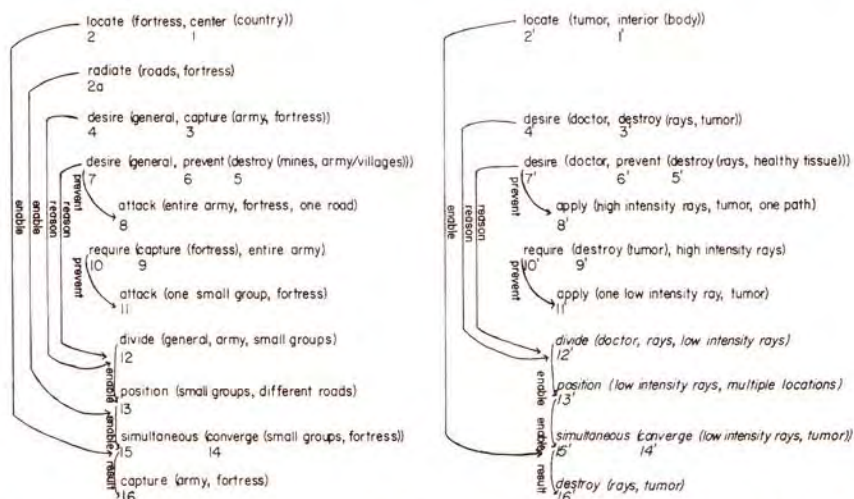 locate (fortress, center (country))
2 1
radiate (roads, fortress)
2a
desire (general, capture (army, fortress))
4 3
desire (general, prevent (destroy (mines, army/villages)))
7 6 5
attack (entire army, fortress, one road)
8
require (capture (fortress), entire army)
10 9
attack (one small group, fortress)
11
divide (general, army, small groups)
12
position (small groups, different roads)
13
simultaneous (converge (small groups, fortress))
15 14
capture (army, fortress)
16
enable
enable
reason
reason
prevent
prevent
enable
enable
result
locate (tumor, interior (body))
2' 1'
desire (doctor, destroy (rays, tumor))
4' 3'
desire (doctor, prevent (destroy (rays, healthy tissue)))
7' 6' 5'
apply (high intensity rays, tumor, one path)
8'
require (destroy (tumor), high intensity rays)
10' 9'
apply (one low intensity ray, tumor)
11'
divide (doctor, rays, low intensity rays)
12'
position (low intensity rays, multiple locations)
13'
simultaneous (converge (low intensity rays, tumor))
15' 14'
destroy (rays, tumor)
16'
enable
reason
reason
prevent
prevent
enable
enable
result